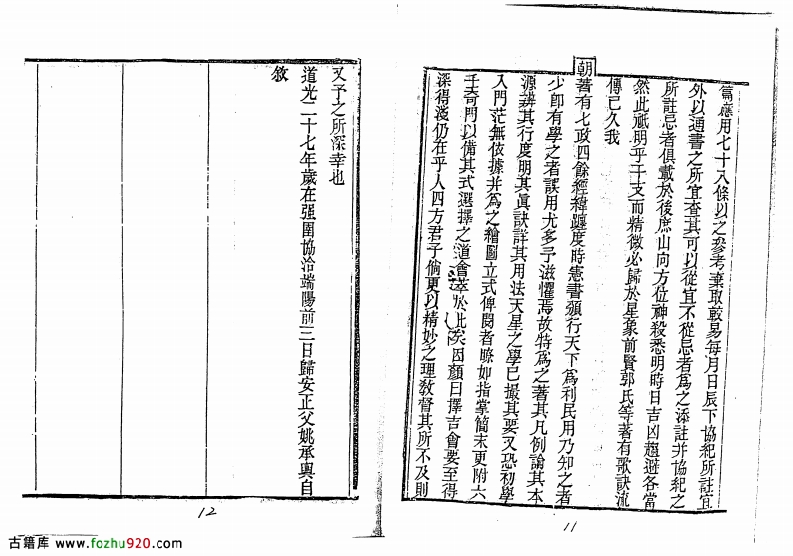 篇應用七十八條以之參考棄取較易每月日辰下協紀所註宜
外以通書之所宜查其可以從宜不從忌者爲之添註幷協紀之
所註忌者俱載於後庶山向方位神殺悉明時日吉凶趨避各當
然此祗明乎干支而精微必歸於星象前賢郭氏等著有歌訣流
傳已久我
朝著有七政四餘經緯躔度時憲書頒行天下爲利民用乃知之者
少卽有學之者誤用尤多予滋懼焉故特爲之著其凡例論其本
源辨其行度明其眞訣詳其用法天星之學已撮其要又恐初學
入門茫無依據幷爲之繪圖立式俾閱者瞭如指掌簡末更附六
壬奇門以備其式選擇之道會萃於此矣因顏曰擇吉會要至得
深得淺仍在乎人四方君子倘更以精妙之理敎督其所不及則
11
又予之所深幸也
道光二十七年歲在强圉協洽端陽前三日歸安正父姚承輿自
敘
12
古籍库 www.fozhu920.com